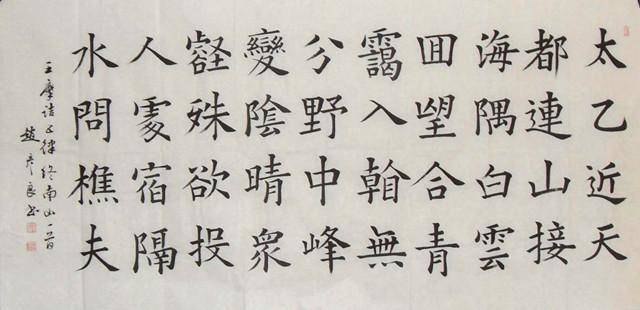 太乙近天
都連山接
海隅白雲
囬望合青
靄入看無
分野中峰
變陰晴衆
壑殊欲投
人處宿隔
水問樵夫
王摩詰五律終南山一首
趙彥良書